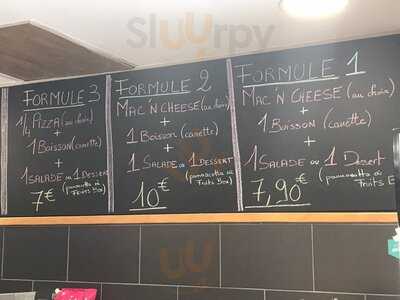 FORMULE 3
1/4 PIZZA (au choix)
+
1 Boisson (canette)
+
1 SALADE ou 1 DESSERT
(pannacotta où
Fruits Box)
7€
FORMULE 2
MAC'N CHEESE (au choix)
+
1 Boisson (canette)
+
1 SALADE ou 1 DESSERT
(pannacotta où
Fruits Box)
10€
FORMULE 1
MAC'N CHEESE (au choix)
+
1 Boisson (canette)
+
1 SALADE ou 1 Dessert
(pannacotta où
Fruits
7,90€
Sluurpy